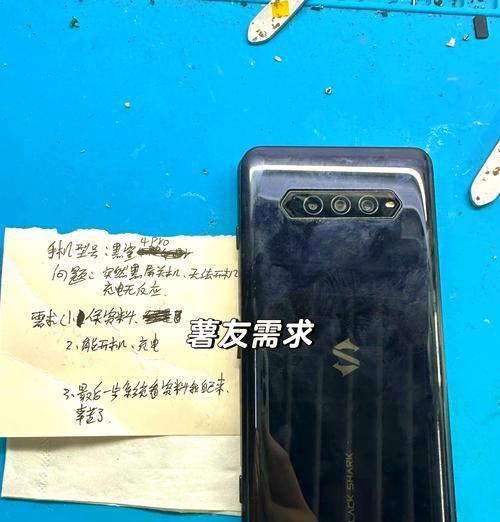 4Pro
手机型号:黑鲨
问题:突然黑屏关机、无法开机
充电无反应.
需求(1)保资料.
2、能开机、充电
薯友需求
3.最后一步系统有资料
来,
辛苦了.
BLACK SHARK